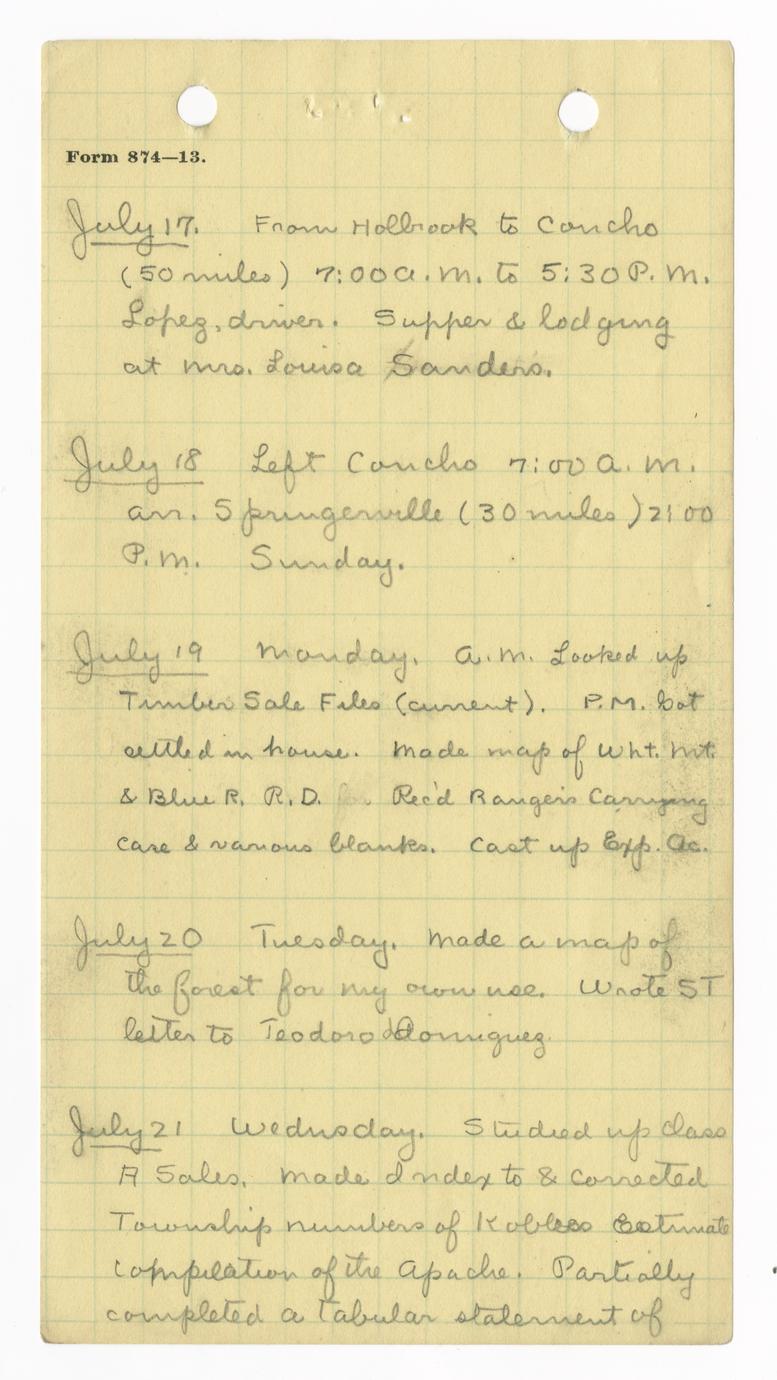 Form 874—13.
July 17. From Holbrook to Concho
(50 miles) 7:00 a.m. to 5:30 P.M.
Lopez, driver. Supper & lodging
at Mrs. Louisa Sanders.
July 18 Left Concho 7:00 a.m.
arr. Springerville (30 miles) 2:00
P.M. Sunday.
July 19 Monday. A.M. Looked up
Timber Sale Files (current). P.M. Got
settled in house. Made map of Wht. Mt.
& Blue R. R.D. Rec'd Ranger's Carrying
case & various blanks. Cast up Exp. Ac.
July 20 Tuesday. Made a map of
the forest for my own use. Wrote ST
letter to Teodoro Domiguez
July 21 Wednesday. Studied up Class
A Sales. Made Index to & Corrected
Township numbers of Kobless Estimate
Compilation of the Apache. Partially
completed a tabular statement of